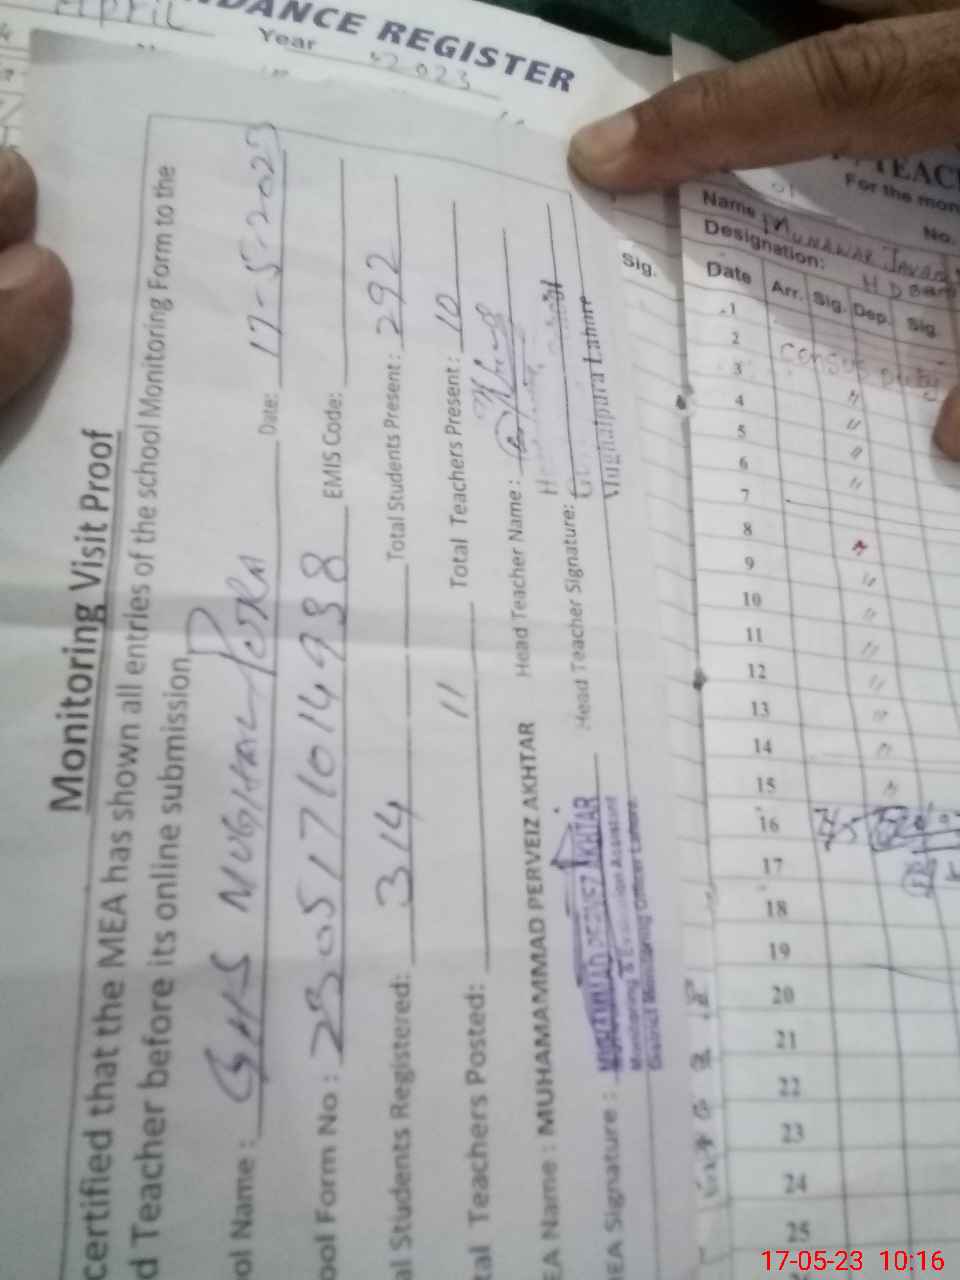 April
DANCE REGISTER
Year 2023
Monitoring Visit Proof
certified that the MEA has shown all entries of the school Monitoring Form to the
d Teacher before its online submission
ol Name : GHS MUGHALPURA Date: 17-5-2023
ool Form No : 2305171014938 EMIS Code:
al Students Registered: 314 Total Students Present : 292
tal Teachers Posted: 11 Total Teachers Present : 10
EA Name : MUHAMAMMAD PERVEIZ AKHTAR Head Teacher Name :
IEA Signature : Head Teacher Signature:
MUHAMMAD PERVEIZ AKHTAR
Monitoring & Evaluation Assistant
District Monitoring Officer Lahore.
Mughalpura Lahore
Sig.
TEAC
For the mon
No.
Name MUNAWAR JAVAID
Designation:
Date Arr. Sig. Dep. Sig.
1
2
3 census duty
4 "
5 "
6 "
7 "
8
9 "
10 "
11 "
12 "
13 "
14 "
15 "
16
17
18
19
20
21
22
23
24
25
17-05-23 10:16